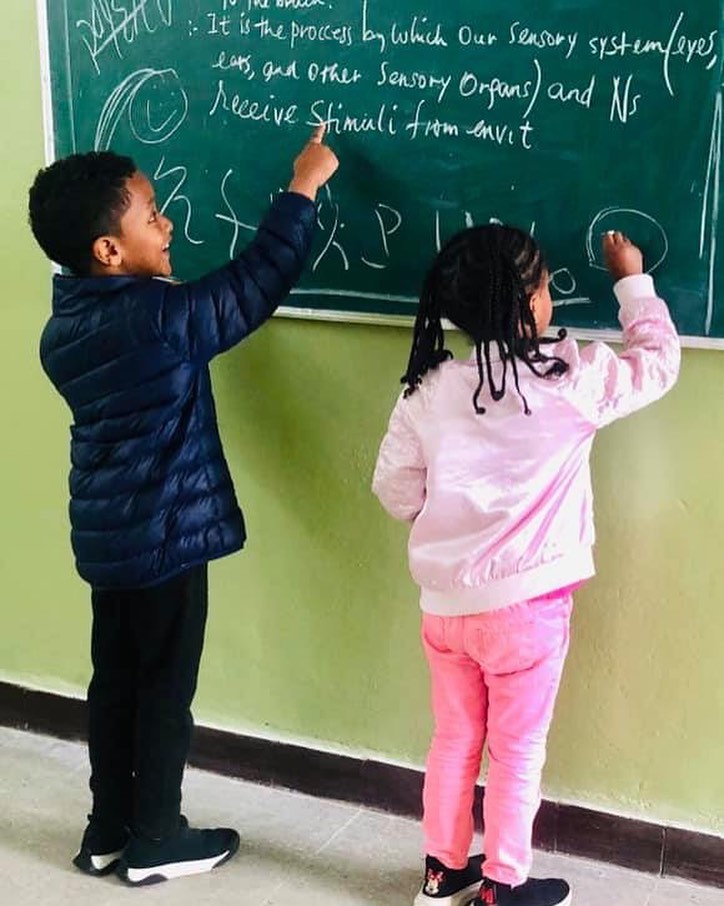 to the brain.
: It is the process by which Our Sensory system (eyes,
ears, and other Sensory Organs) and Ns
receive Stimuli from envit